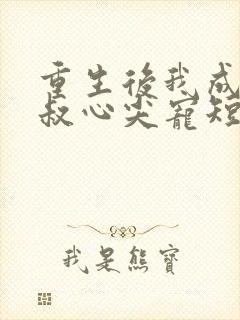 重生後我成
叔心尖寵短
我是熊寶